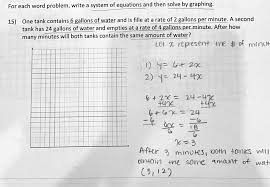 For each word problem, write a system of equations and then solve by graphing.
15) One tank contains 6 gallons of water and is fille at a rate of 2 gallons per minute. A second
tank has 24 gallons of water and empties at a rate of 4 gallons per minute. After how
many minutes will both tanks contain the same amount of water?
Let x represent the # of minut
1) y = 6 + 2x
2) y = 24 - 4x
6 + 2x = 24 - 4x
+4x +4x
6 + 6x = 24
-6 -6
6x = 18
6 6
x = 3
After 3 minutes, both tanks will
contain the same amount of wat
(3, 12)